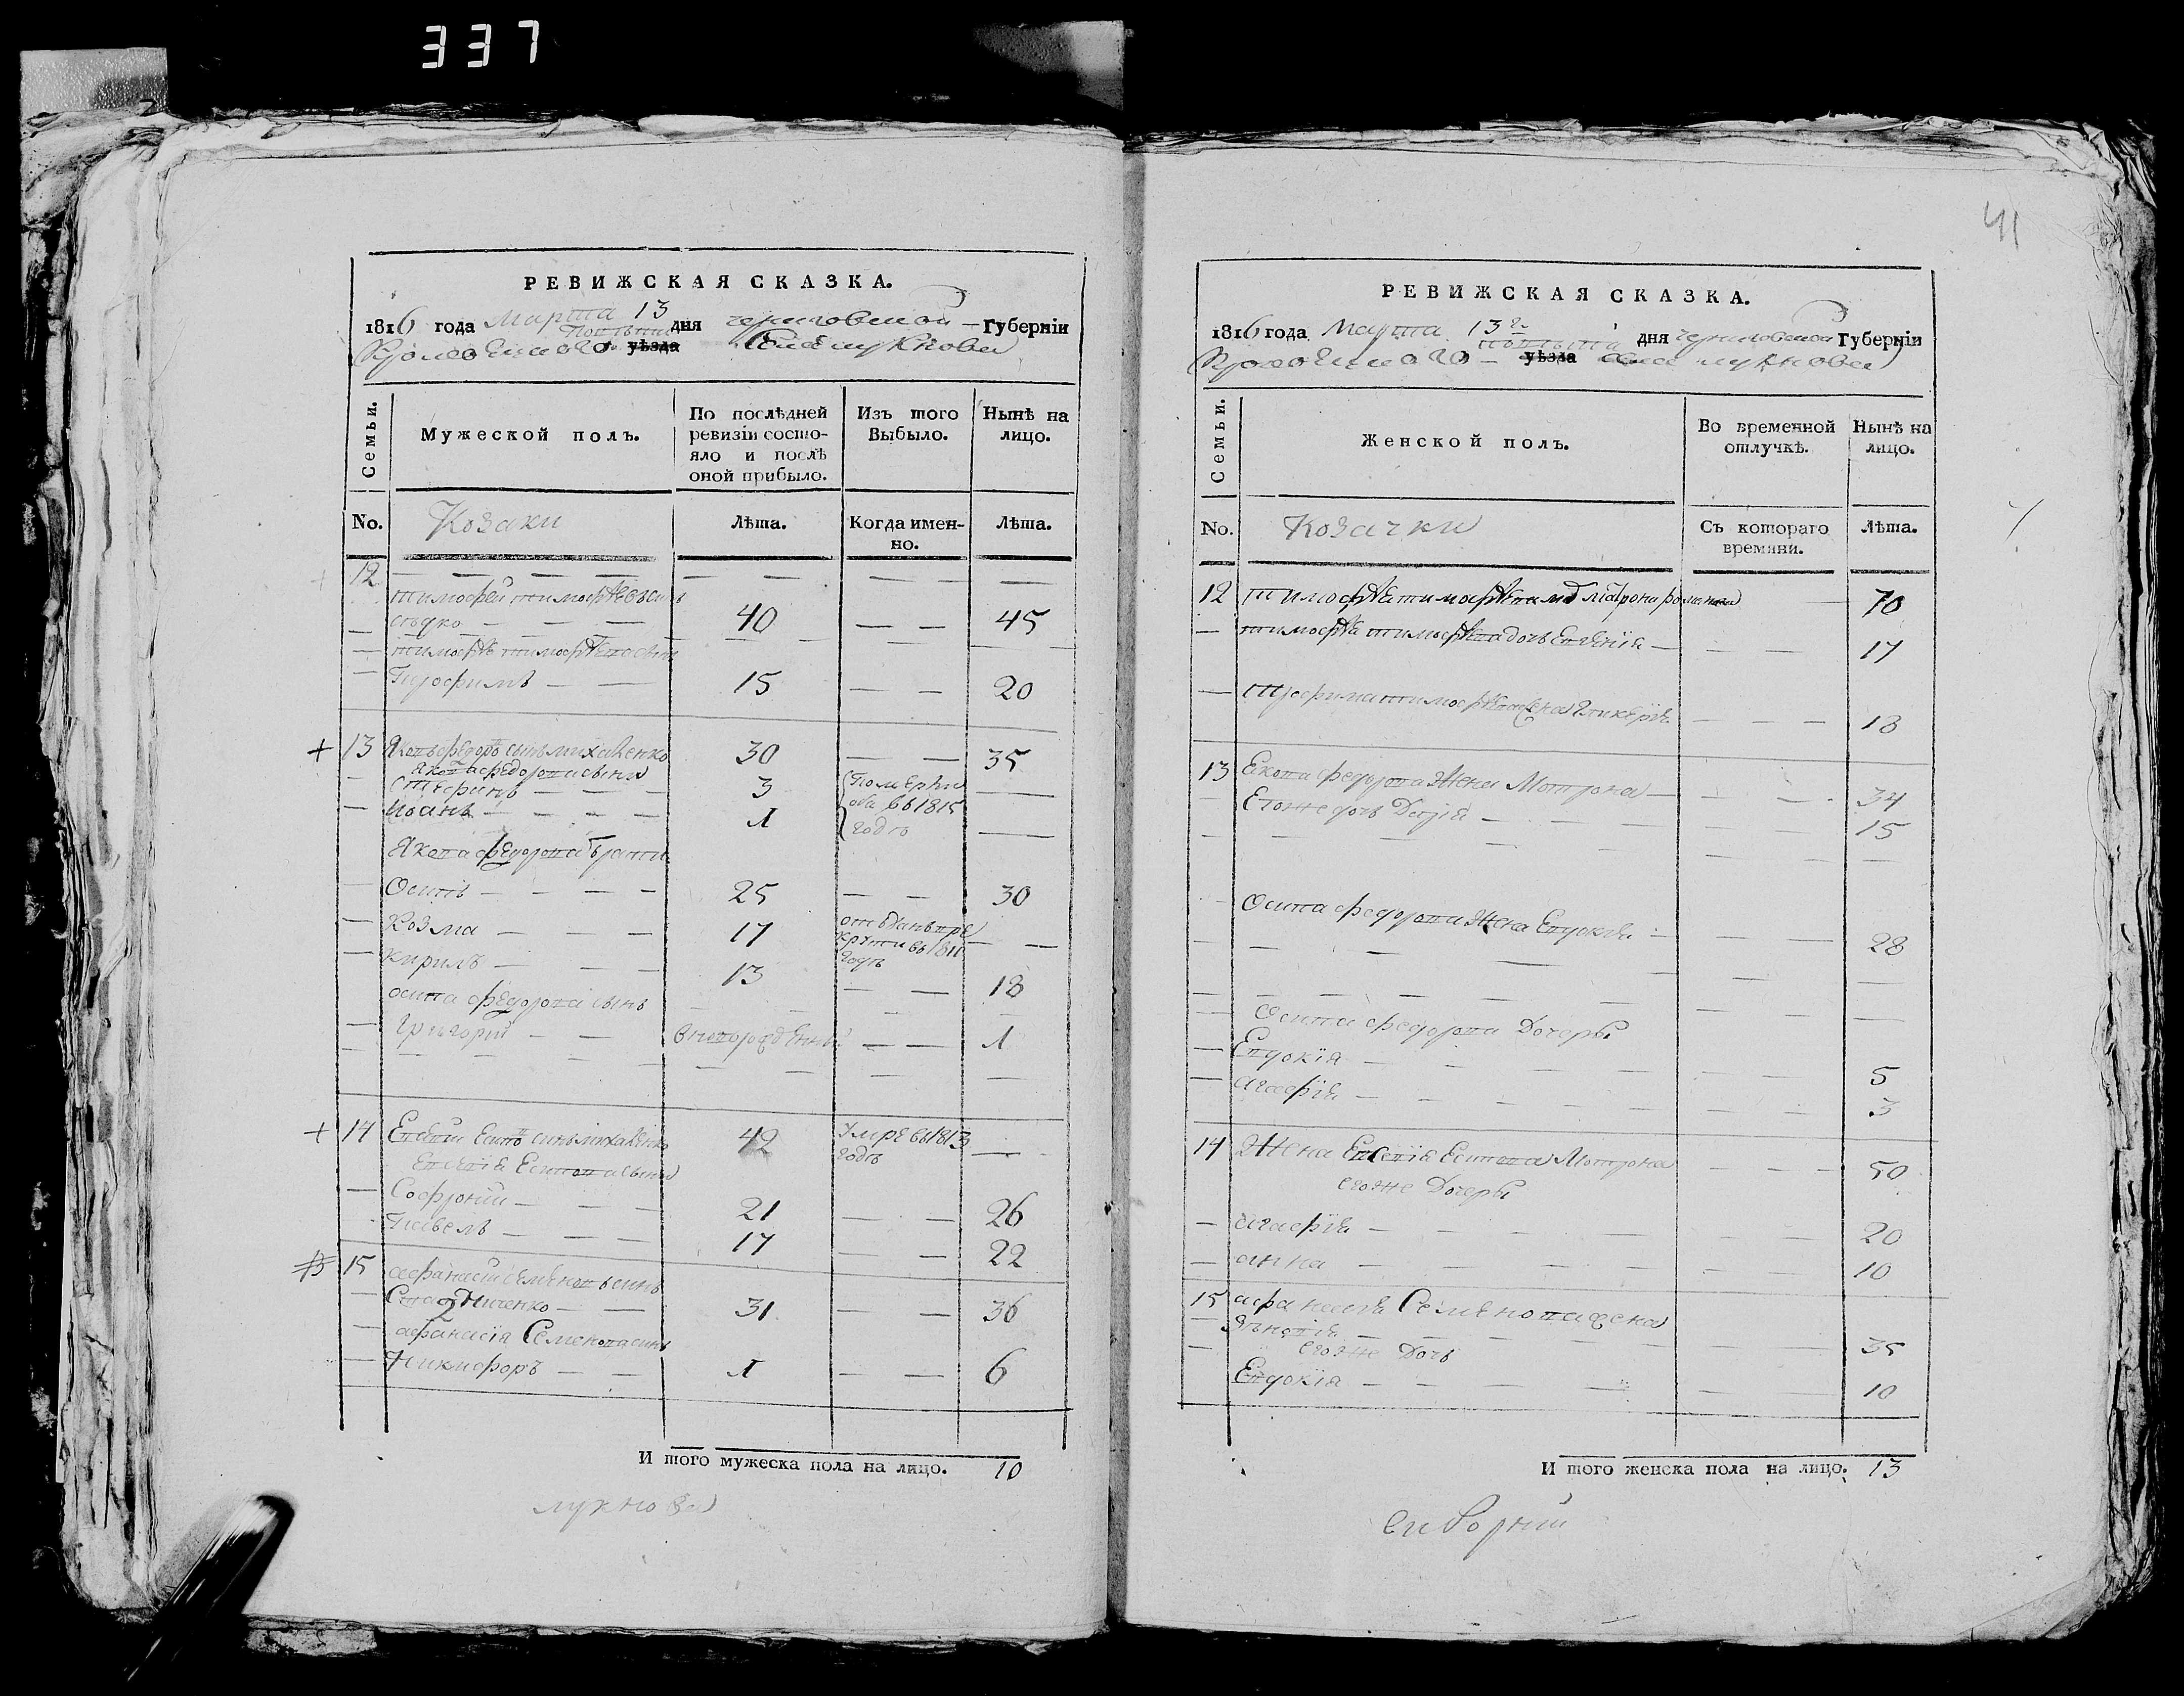 337
РЕВИЖСКАЯ СКАЗКА.
1816 года Марта 13 дня Черниговской Губернїи
повѣта
Кролевецкого уѣзда Села Лукнова
Семьи.
Мужеской полъ.
По послѣдней ревизїи состояло и послѣ оной прибыло.
Изъ того Выбыло.
Нынѣ на лицо.
No. Козаки Лѣта. Когда именно. Лѣта.
12
Тимофей Тимофѣевъ сынъ
40 45
Тимофѣя Тимофѣева сынъ
Трофимъ 15 20
13 Яковъ Федоровъ сынъ Михаленко 30 35
Якова Федорова сыны
Стефанъ 3 Померли
Иоанъ 1 оба въ 1815 годѣ
Якова Федорова братья
Осипъ 25 30
Козма 17 отъданъ в рекруты въ 1811 годѣ
Кирилъ 13 18
Осипа Федорова сынъ
Григорий новорожденный 1
14 Евсевий Есипов синъ Михаленко 42 Умре въ 1813 годѣ
Евсевїя Есипова сыны
Софроний 21 26
Павелъ 17 22
15 Афанасий Семеновъ синъ
31 36
Афанасїя Семенова синъ
Никифоръ 1 6
И того мужеска пола на лицо. 10
Лукнова
41
РЕВИЖСКАЯ СКАЗКА.
1816 года Марта 13го дня Черниговской Губернїи
повѣта
Кролевецкого уѣзда Села Лукнова
Семьи.
Женской полъ.
Во временной отлучкѣ.
Нынѣ на лицо.
No. Козачки Съ котораго времяни. Лѣта.
12 Тимофѣя Тимофѣева Матрона Романова 70
Тимофѣя Тимофѣева дочь Евгенїя 17
Трофима Тимофѣева жена Гликерїя 18
13 Якова Федорова Жена Мотрона 34
Егоже дочь Дарїя 15
Осипа Федорова Жена Евдокїя 28
Осипа Федорова Дочеры
Евдокїя 5
Агафїя 3
14 Жена Евсевїя Есипова Мотрона 50
егоже Дочеры
Агафїя 20
Анна 10
15 Афанасїя Семенова жена
35
егоже Дочь
Евдокїя 10
И того женска пола на лицо. 13